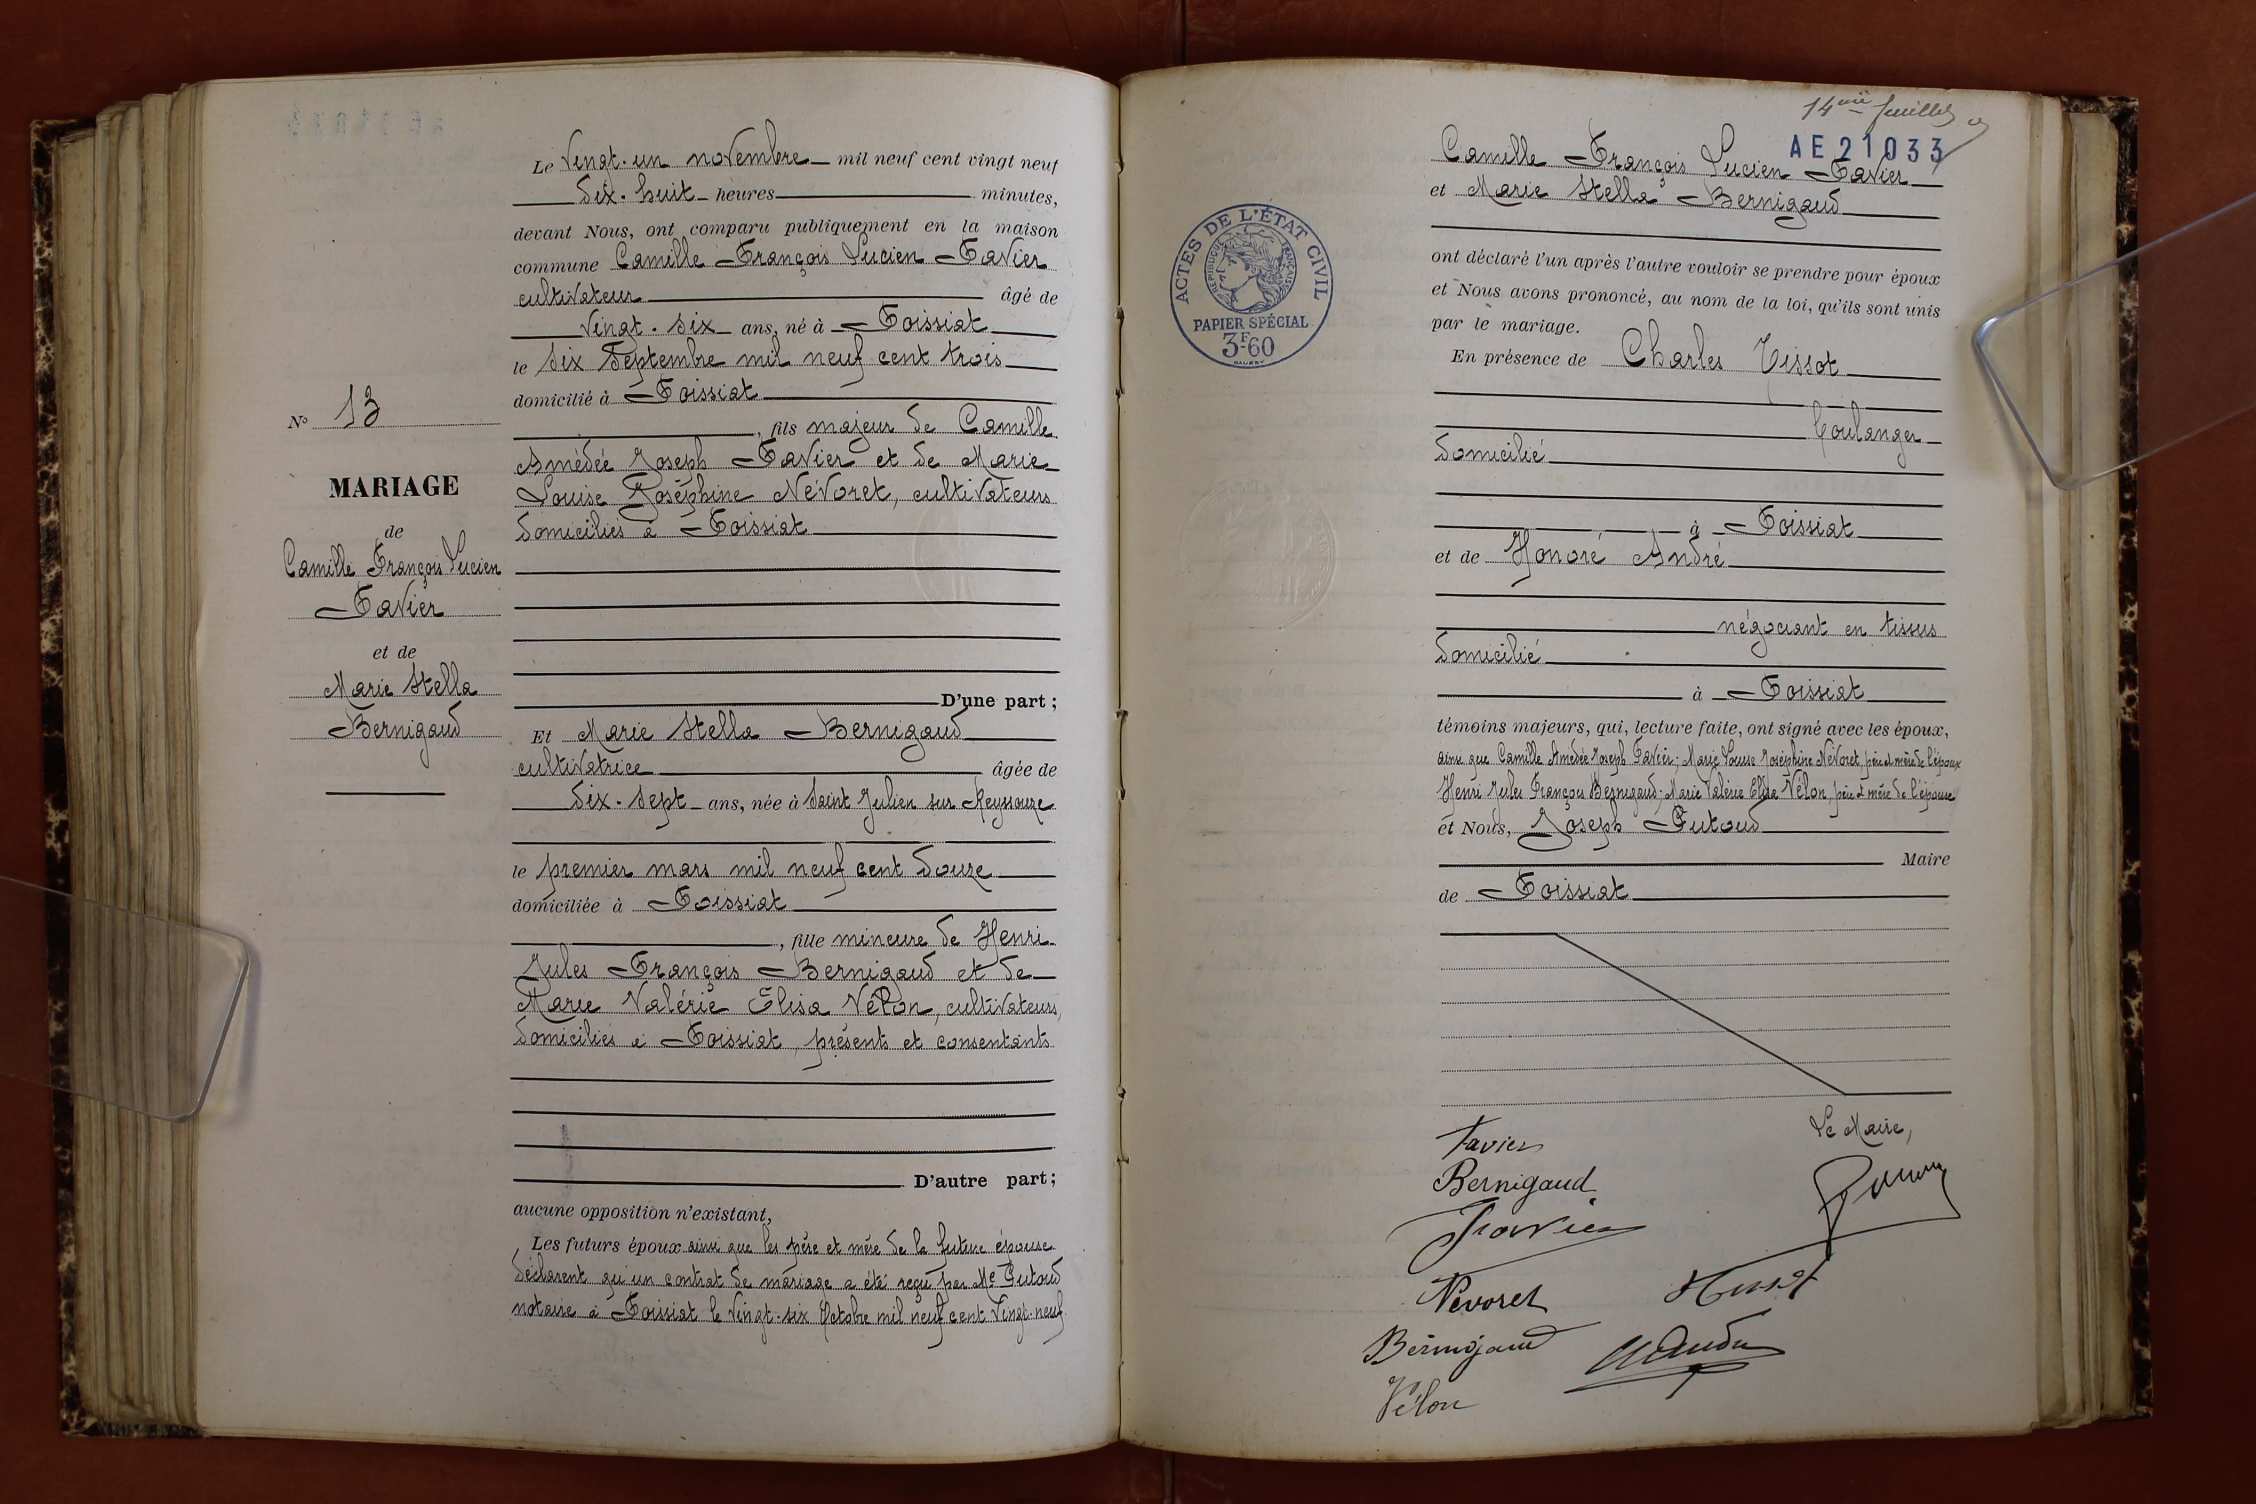 14me feuillet
AE 21033
Le Vingt-un novembre mil neuf cent vingt neuf
dix-huit heures minutes,
devant Nous, ont comparu publiquement en la maison
commune Camille François Lucien Favier
cultivateur âgé de
vingt-six ans, né à Foissiat
le six Septembre mil neuf cent trois
domicilié à Foissiat
No 13
, fils majeur de Camille
Amédée Joseph Favier et de Marie
Louise Joséphine Névoret, cultivateurs
domiciliés à Foissiat
MARIAGE
de
Camille François Lucien
Favier
et de
Marie Stella
Bernigaud
D'une part ;
Et Marie Stella Bernigaud
cultivatrice âgée de
dix-sept ans, née à Saint Julien sur Reyssouze
le premier mars mil neuf cent douze
domiciliée à Foissiat
, fille mineure de Henri
Jules François Bernigaud et de
Marie Valérie Élisa Vélon, cultivateurs,
domiciliés à Foissiat, présents et consentants
D'autre part ;
aucune opposition n'existant,
Les futurs époux ainsi que les père et mère de la future épouse
déclarent qu'un contrat de mariage a été reçu par Me Putoud
notaire à Foissiat le vingt-six Octobre mil neuf cent vingt-neuf
Camille François Lucien Favier
et Marie Stella Bernigaud
ACTES DE L'ÉTAT CIVIL
RÉPUBLIQUE FRANÇAISE
PAPIER SPÉCIAL
3F60
ont déclaré l'un après l'autre vouloir se prendre pour époux
et Nous avons prononcé, au nom de la loi, qu'ils sont unis
par le mariage.
En présence de Charles Tissot
boulanger
domicilié
à Foissiat
et de Honoré André
négociant en tissus
domicilié
à Foissiat
témoins majeurs, qui, lecture faite, ont signé avec les époux,
ainsi que Camille Amédée Joseph Favier; Marie Louise Joséphine Névoret, père et mère de l'époux
Henri Jules François Bernigaud; Marie Valérie Élisa Vélon, père et mère de l'épouse
et Nous, Joseph Putoud
Maire
de Foissiat
Le Maire,
Favier
Bernigaud
Favier
Névoret
Bernigaud
Vélon